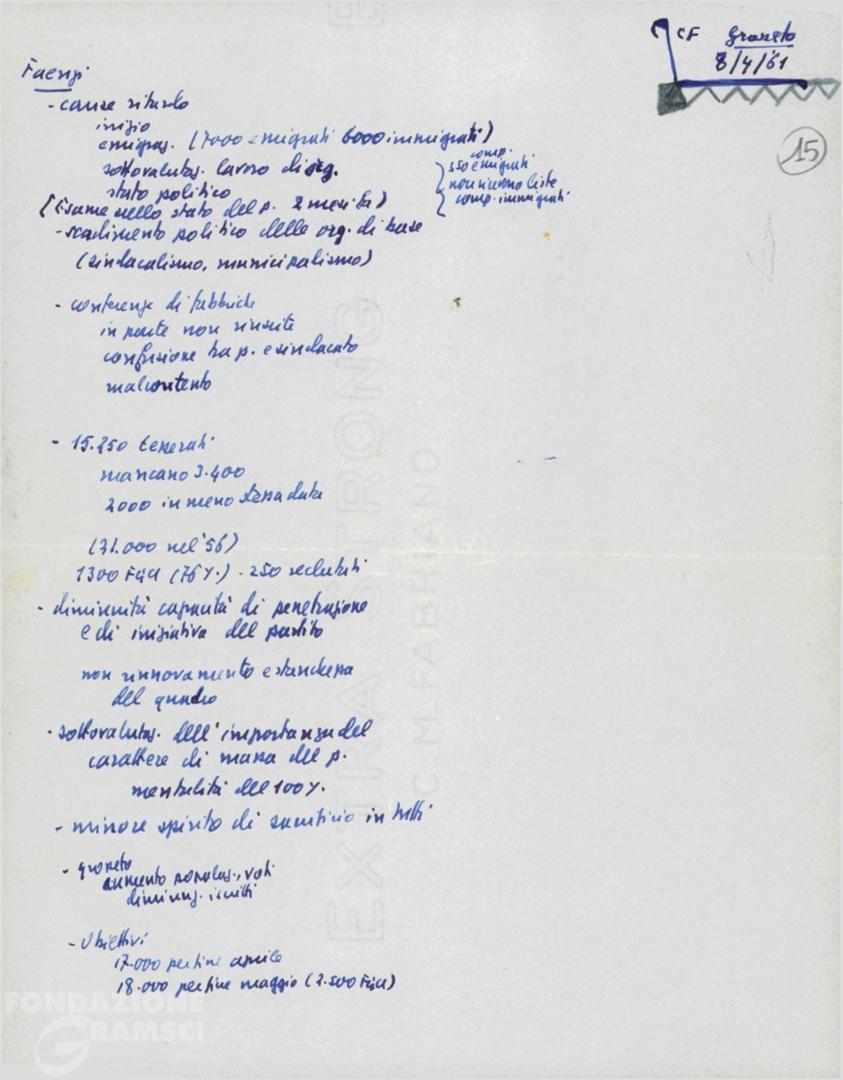 CF Grosseto
8/4/'61
15
Faenzi
- cause ritardo
inizio
emigraz. (7000 emigrati 6000 immigrati)
sottovalutaz. lavoro di org.
stato politico
(Esame sullo stato del p. 2 mesi fa)
comp.
550 emigrati
non ricevono liste
comp. immigrati
- scadimento politico delle org. di base
(sindacalismo, municipalismo)
- conferenze di fabbriche
in parte non riuscite
confusione tra p. e sindacato
malcontento
- 15.250 tesserati
mancano 3.400
2000 in meno stessa data
(21.000 nel '56)
1300 FGCI (76%) - 250 reclutati
- diminuita capacità di penetrazione
e di iniziativa del partito
non rinnovamento e stanchezza
del quadro
- sottovalutaz. dell'importanza del
carattere di massa del p.
mentalità del 100%.
- minore spirito di sacrificio in tutti
- Grosseto
aumento popolaz., voti
diminuz. iscritti
- Obiettivi
17.000 per fine aprile
18.000 per fine maggio (2.500 FGCI)
EXTRA STRONG
C.M. FABRIANO
FONDAZIONE
GRAMSCI